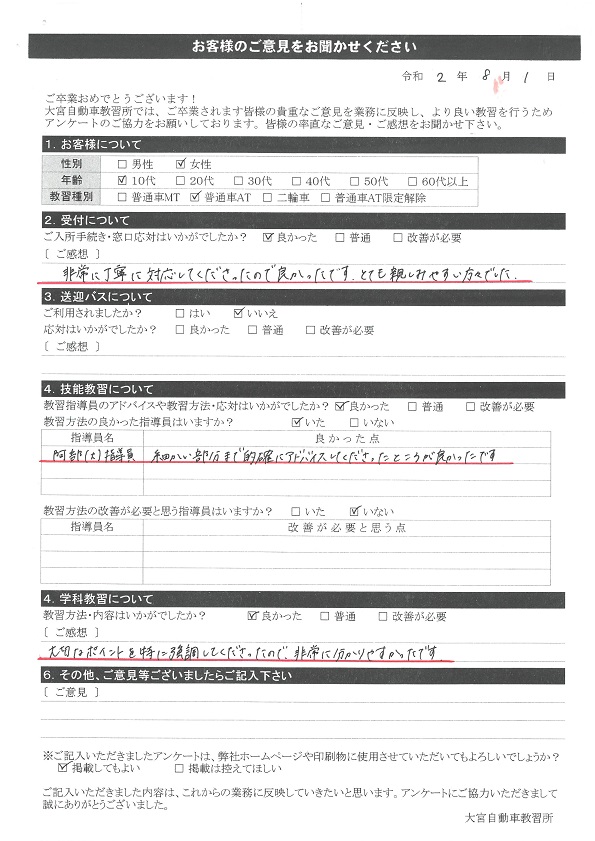 お客様のご意見をお聞かせください
令和 2 年 8 月 1 日
ご卒業おめでとうございます！
大宮自動車教習所では、ご卒業されます皆様の貴重なご意見を業務に反映し、より良い教習を行うため
アンケートのご協力をお願いしております。皆様の率直なご意見・ご感想をお聞かせ下さい。
1. お客様について
性別 □ 男性 ☑ 女性
年齢 ☑ 10代 □ 20代 □ 30代 □ 40代 □ 50代 □ 60代以上
教習種別 □ 普通車MT ☑ 普通車AT □ 二輪車 □ 普通車AT限定解除
2. 受付について
ご入所手続き・窓口応対はいかがでしたか？ ☑ 良かった □ 普通 □ 改善が必要
［ ご感想 ］
非常に丁寧に対応してくださったので良かったです。とても親しみやすい方々でした。
3. 送迎バスについて
ご利用されましたか？ □ はい ☑ いいえ
応対はいかがでしたか？ □ 良かった □ 普通 □ 改善が必要
［ ご感想 ］
4. 技能教習について
教習指導員のアドバイスや教習方法・応対はいかがでしたか？ ☑ 良かった □ 普通 □ 改善が必要
教習方法の良かった指導員はいますか？ ☑ いた □ いない
指導員名 良かった点
阿部(大)指導員 細かい部分まで的確にアドバイスしてくださったところが良かったです
教習方法の改善が必要と思う指導員はいますか？ □ いた ☑ いない
指導員名 改善が必要と思う点
4. 学科教習について
教習方法・内容はいかがでしたか？ ☑ 良かった □ 普通 □ 改善が必要
［ ご感想 ］
大切なポイントを特に強調してくださったので、非常に分かりやすかったです
6. その他、ご意見等ございましたらご記入下さい
［ ご意見 ］
※ご記入いただきましたアンケートは、弊社ホームページや印刷物に使用させていただいてもよろしいでしょうか？
☑ 掲載してもよい □ 掲載は控えてほしい
ご記入いただきました内容は、これからの業務に反映していきたいと思います。アンケートにご協力いただきまして
誠にありがとうございました。
大宮自動車教習所